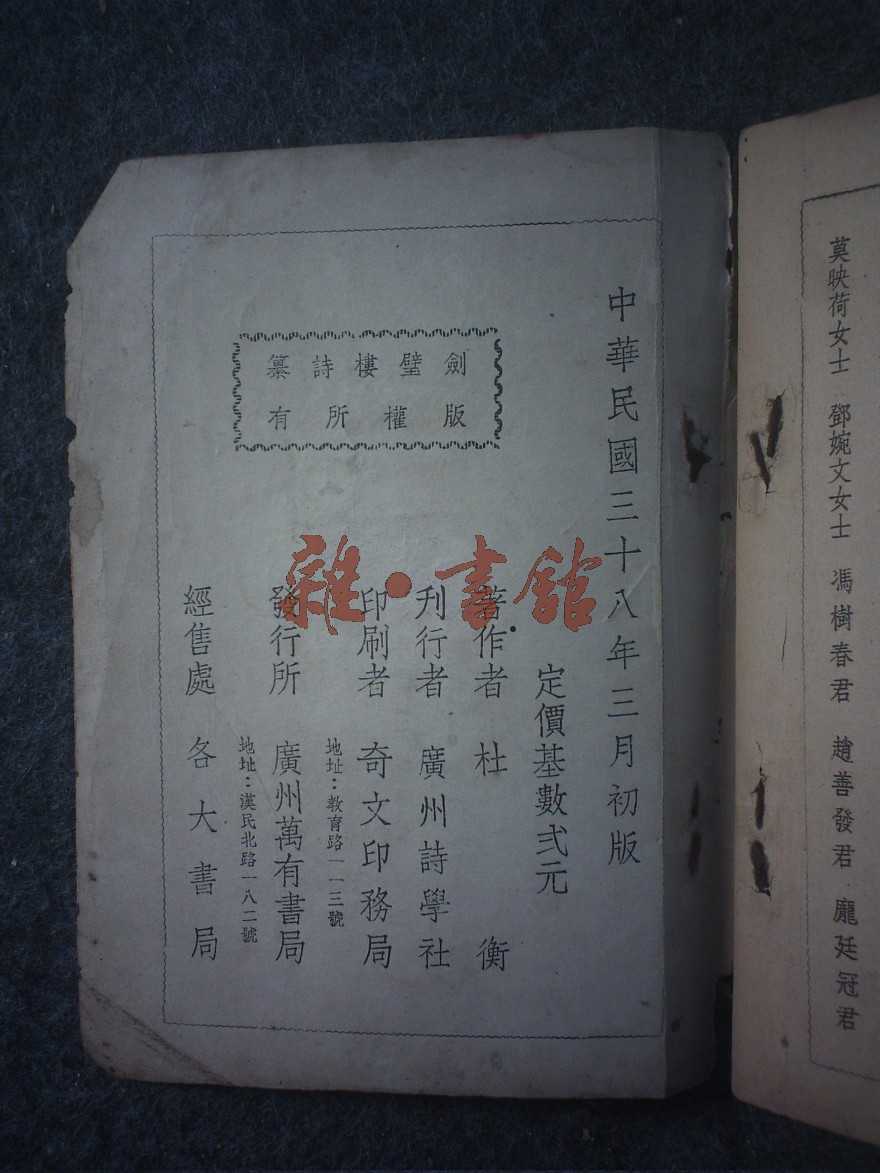 莫映荷女士　鄧婉文女士　馮樹春君　趙善發君　龐廷冠君
中華民國三十八年三月初版
劍璧樓詩纂
版權所有
定價基數弍元
著作者　杜衡
刋行者　廣州詩學社
印刷者　奇文印務局
地址：教育路一一三號
發行所　廣州萬有書局
地址：漢民北路一八二號
經售處　各大書局
雜·書館